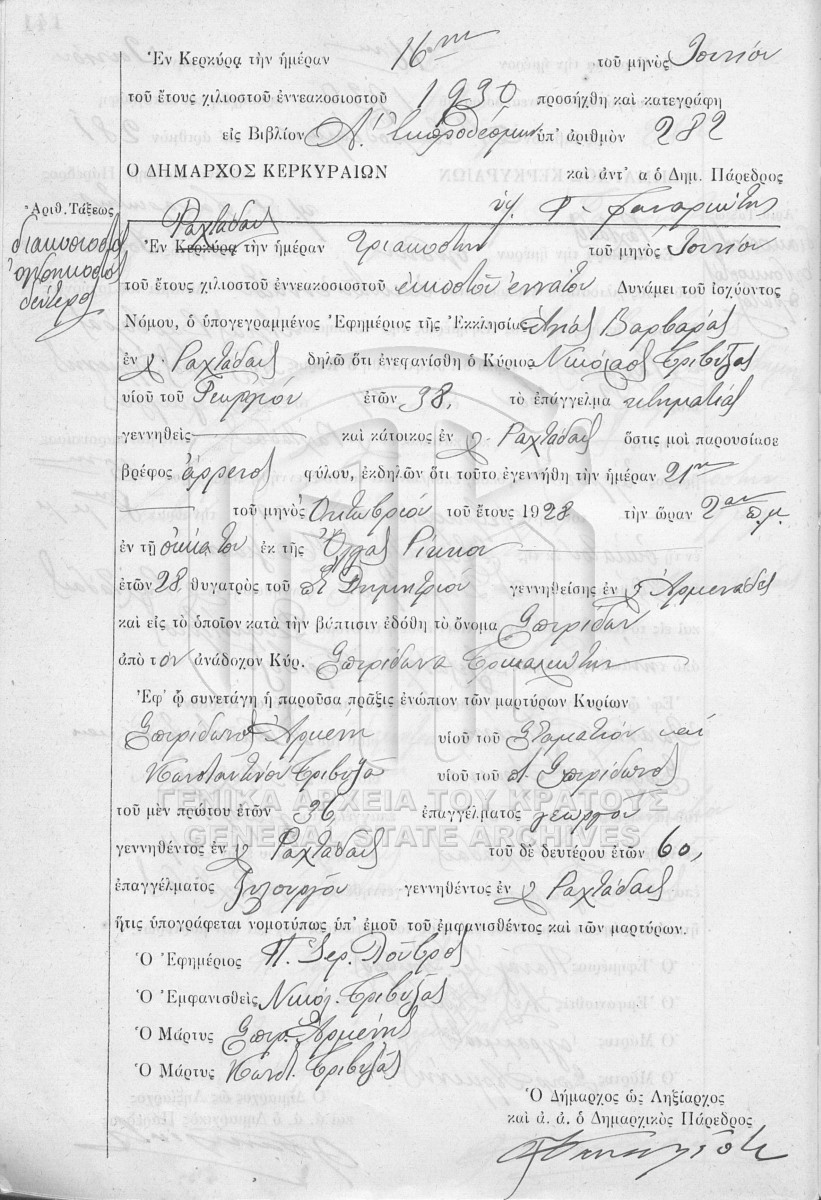 Ἐν Κερκύρᾳ τὴν ἡμέραν 16ην τοῦ μηνὸς Ἰουνίου
τοῦ ἔτους χιλιοστοῦ ἐννεακοσιοστοῦ 1930 προσήχθη καὶ κατεγράφη
εἰς Βιβλίον Α. Ἐκπροθέσμων ὑπ' ἀριθμὸν 282
Ο ΔΗΜΑΡΧΟΣ ΚΕΡΚΥΡΑΙΩΝ καὶ ἀντ' α ὁ Δημ. Πάρεδρος
Ἀριθ. Τάξεως
διακοσιοστὸς
ὀγδοηκοστὸς
δεύτερος
Ραχτάδες
Ἐν Κερκύρᾳ τὴν ἡμέραν τριακοστὴν τοῦ μηνὸς Ἰουνίου
τοῦ ἔτους χιλιοστοῦ ἐννεακοσιοστοῦ εἰκοστοῦ ἐννάτου Δυνάμει τοῦ ἰσχύοντος
Νόμου, ὁ ὑπογεγραμμένος Ἐφημέριος τῆς Ἐκκλησίας Ἁγίας Βαρβάρας
ἐν χ. Ραχτάδες δηλῶ ὅτι ἐνεφανίσθη ὁ Κύριος Νικόλαος Τριβυζᾶς
υἱοῦ τοῦ Γεωργίου ἐτῶν 38, τὸ ἐπάγγελμα κτηματίας
γεννηθεὶς καὶ κάτοικος ἐν χ. Ραχτάδες ὅστις μοὶ παρουσίασε
βρέφος ἄρρενος φύλου, ἐκδηλῶν ὅτι τοῦτο ἐγεννήθη τὴν ἡμέραν 21ην
τοῦ μηνὸς Ὀκτωβρίου τοῦ ἔτους 1928 τὴν ὥραν 2αν π.μ.
ἐν τῇ οἰκίᾳ του ἐκ τῆς Ὄλγας Ρίκκου
ἐτῶν 28 θυγατρὸς τοῦ Δημητρίου γεννηθείσης ἐν χ Ἀρμενάδες
καὶ εἰς τὸ ὁποῖον κατὰ τὴν βάπτισιν ἐδόθη τὸ ὄνομα Σπυρίδων
ἀπὸ τὸν ἀνάδοχον Κύρ. Σπυρίδωνα
Ἐφ' ᾧ συνετάγη ἡ παροῦσα πρᾶξις ἐνώπιον τῶν μαρτύρων Κυρίων
Σπυρίδωνος Ἀρμένη υἱοῦ τοῦ Σταματίου καὶ
Κωνσταντίνου Τριβυζᾶ υἱοῦ τοῦ Σπυρίδωνος
ΓΕΝΙΚΑ ΑΡΧΕΙΑ ΤΟΥ ΚΡΑΤΟΥΣ
τοῦ μὲν πρώτου ἐτῶν 36 ἐπαγγέλματος γεωργοῦ
GENERAL STATE ARCHIVES
γεννηθέντος ἐν χ Ραχτάδες τοῦ δὲ δευτέρου ἐτῶν 60,
ἐπαγγέλματος ξυλουργοῦ γεννηθέντος ἐν χ Ραχτάδες
ἥτις ὑπογράφεται νομοτύπως ὑπ' ἐμοῦ τοῦ ἐμφανισθέντος καὶ τῶν μαρτύρων.
Ὁ Ἐφημέριος Π.
Ὁ Ἐμφανισθεὶς Νικόλ. Τριβυζᾶς
Ὁ Μάρτυς Σπυρ. Ἀρμένης
Ὁ Μάρτυς Κωνστ. Τριβυζᾶς
Ὁ Δήμαρχος ὡς Ληξίαρχος
καὶ ἀ. ἀ. ὁ Δημαρχικὸς Πάρεδρος